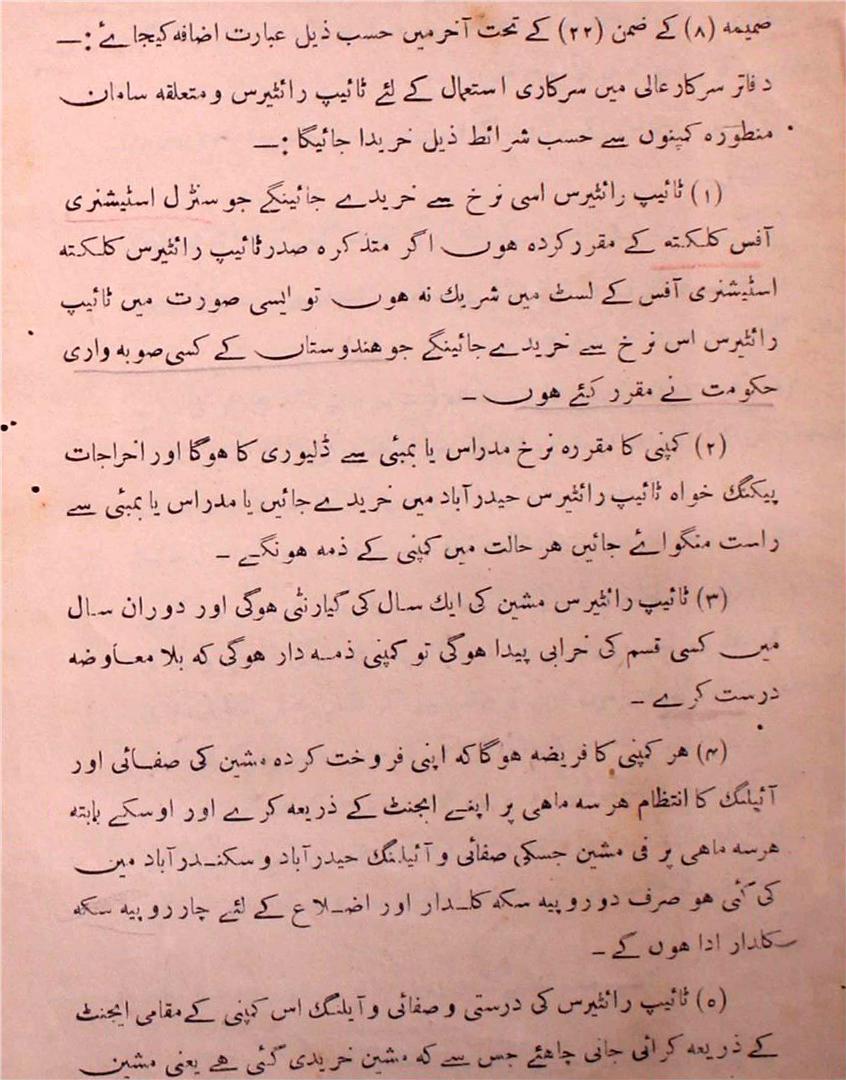 ضمیمہ (۸) کے ضمن (۲۲) کے تحت آخر میں حسب ذیل عبارت اضافہ کیجاۓ :—
دفاتر سرکار عالی میں سرکاری استعمال کے لئے ٹائیپ رائٹیرس و متعلقہ سامان
منظورہ کمپنوں سے حسب شرائط ذیل خریدا جائیگا :—
(۱) ٹائیپ رائٹیرس اسی نرخ سے خریدے جائینگے جو سنٹرل اسٹیشنری
آفس کلکتہ کے مقرر کردہ ہوں اگر متذکرہ صدر ٹائیپ رائٹیرس کلکتہ
اسٹیشنری آفس کے لسٹ میں شریک نہ ہوں تو ایسی صورت میں ٹائیپ
رائٹیرس اس نرخ سے خریدے جائینگے جو ہندوستان کے کسی صوبہ واری
حکومت نے مقرر کئے ہوں —
(۲) کمپنی کا مقررہ نرخ مدراس یا بمبئی سے ڈلیوری کا ہوگا اور اخراجات
پیکنگ خواہ ٹائیپ رائٹیرس حیدرآباد میں خریدے جائیں یا مدراس یا بمبئی سے
راست منگواۓ جائیں ہر حالت میں کمپنی کے ذمہ ہونگے —
(۳) ٹائیپ رائٹیرس مشین کی ایک سال کی گیارنٹی ہوگی اور دوران سال
میں کسی قسم کی خرابی پیدا ہوگی تو کمپنی ذمہ دار ہوگی کہ بلا معاوضہ
درست کرے —
(۴) ہر کمپنی کا فریضہ ہوگا کہ اپنی فروخت کردہ مشین کی صفائی اور
آئیلنگ کا انتظام ہر سہ ماہی پر اپنے ایجنٹ کے ذریعہ کرے اور اوسکے بابتہ
ہر سہ ماہی پر فی مشین جسکی صفائی و آئیلنگ حیدرآباد و سکندرآباد میں
کی گئی ہو صرف دو روپیہ سکہ کلدار اور اضلاع کے لئے چار روپیہ سکہ
کلدار ادا ہوں گے —
(۵) ٹائیپ رائٹیرس کی درستی و صفائی و آیلنگ اس کمپنی کے مقامی ایجنٹ
کے ذریعہ کرائی جانی چاہئے جس سے کہ مشین خریدی گئی ہے یعنی مشین